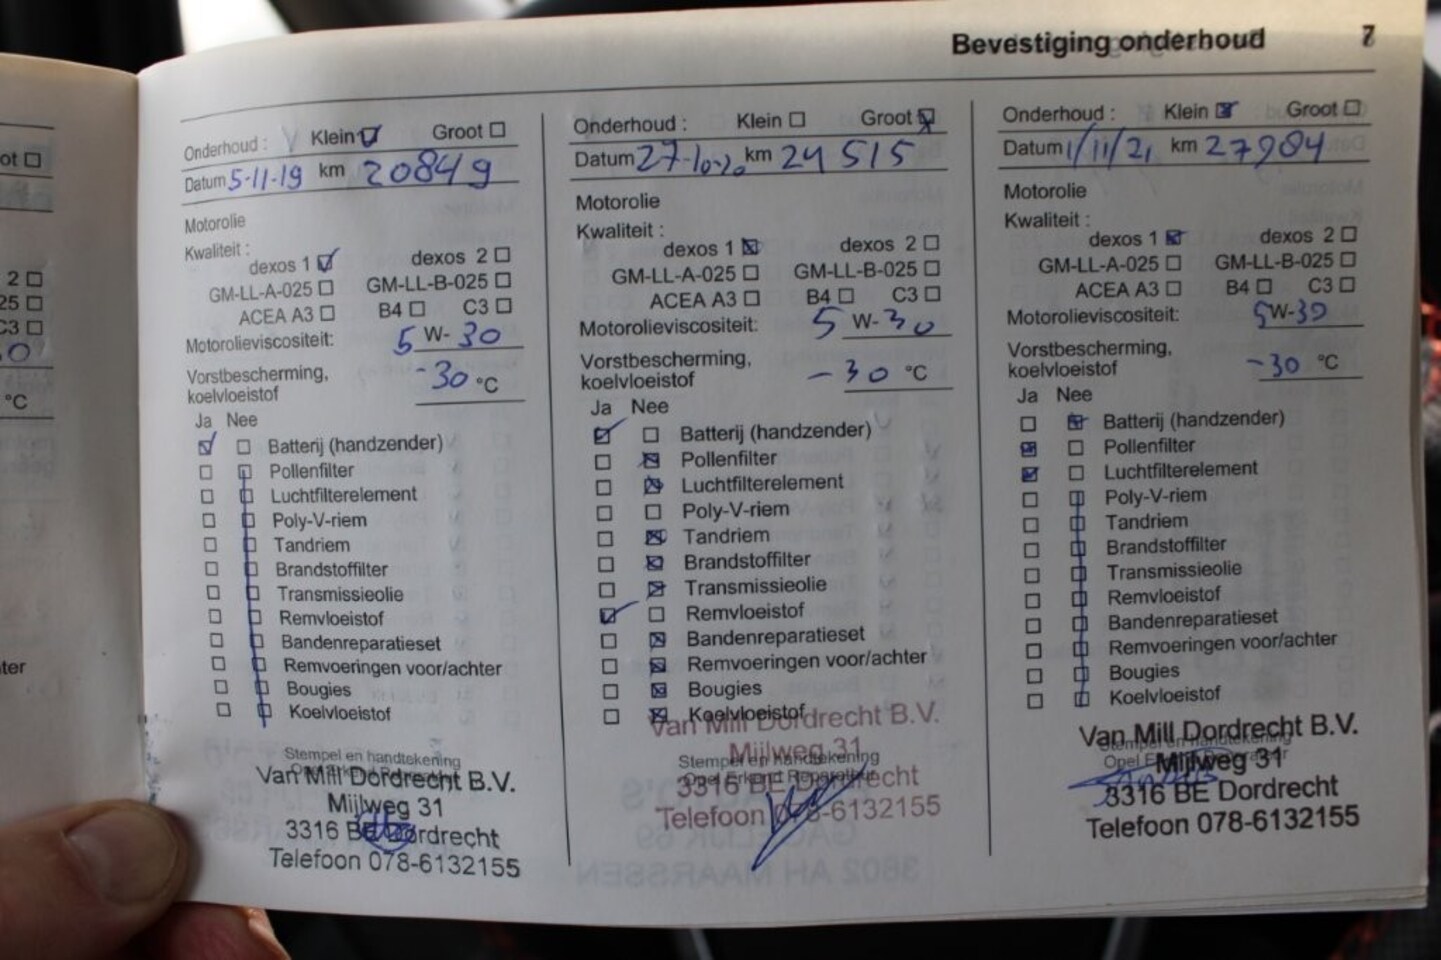 Bevestiging onderhoud
ot
2
25
C3
0
°C
ter
Onderhoud : Klein Groot
Datum 5-11-19 km 20849
Motorolie
Kwaliteit :
dexos 1 dexos 2
GM-LL-A-025 GM-LL-B-025
ACEA A3 B4 C3
Motorolieviscositeit: 5 W-30
Vorstbescherming,
koelvloeistof -30 °C
Ja Nee
Batterij (handzender)
Pollenfilter
Luchtfilterelement
Poly-V-riem
Tandriem
Brandstoffilter
Transmissieolie
Remvloeistof
Bandenreparatieset
Remvoeringen voor/achter
Bougies
Koelvloeistof
Stempel en handtekening
Van Mill Dordrecht B.V.
Mijlweg 31
3316 BE Dordrecht
Telefoon 078-6132155
Onderhoud : Klein Groot
Datum 27-10-20 km 24515
Motorolie
Kwaliteit :
dexos 1 dexos 2
GM-LL-A-025 GM-LL-B-025
ACEA A3 B4 C3
Motorolieviscositeit: 5 W-30
Vorstbescherming,
koelvloeistof -30 °C
Ja Nee
Batterij (handzender)
Pollenfilter
Luchtfilterelement
Poly-V-riem
Tandriem
Brandstoffilter
Transmissieolie
Remvloeistof
Bandenreparatieset
Remvoeringen voor/achter
Bougies
Koelvloeistof
Van Mill Dordrecht B.V.
Mijlweg 31
Stempel en handtekening
Opel Erkend Reparateur
3316 BE Dordrecht
Telefoon 078-6132155
Onderhoud : Klein Groot
Datum 1/11/21 km 27984
Motorolie
Kwaliteit :
dexos 1 dexos 2
GM-LL-A-025 GM-LL-B-025
ACEA A3 B4 C3
Motorolieviscositeit: 5W-30
Vorstbescherming,
koelvloeistof -30 °C
Ja Nee
Batterij (handzender)
Pollenfilter
Luchtfilterelement
Poly-V-riem
Tandriem
Brandstoffilter
Transmissieolie
Remvloeistof
Bandenreparatieset
Remvoeringen voor/achter
Bougies
Koelvloeistof
Van Mill Dordrecht B.V.
Stempel en handtekening
Mijlweg 31
3316 BE Dordrecht
Telefoon 078-6132155